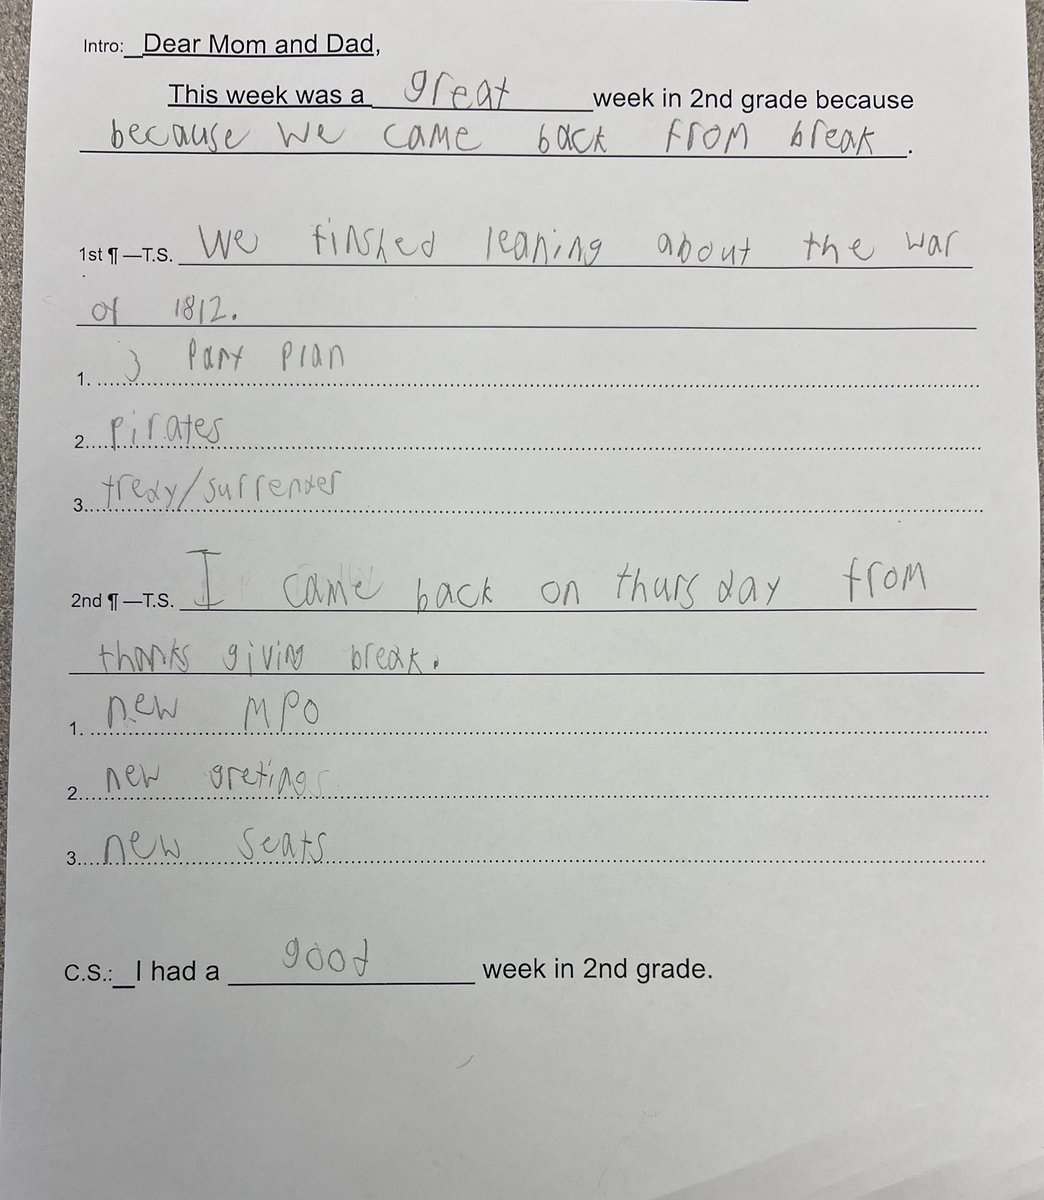 Intro: Dear Mom and Dad,
This week was a great week in 2nd grade because
because we came back from break.
1st ¶—T.S. We finshed leaning about the war
of 1812.
1. 3 Part Plan
2. pirates
3. tredy/surrender
2nd ¶—T.S. I came back on thursday from
thanks giving break.
1. new MPO
2. new greting
3. new seats
C.S.: I had a good week in 2nd grade.